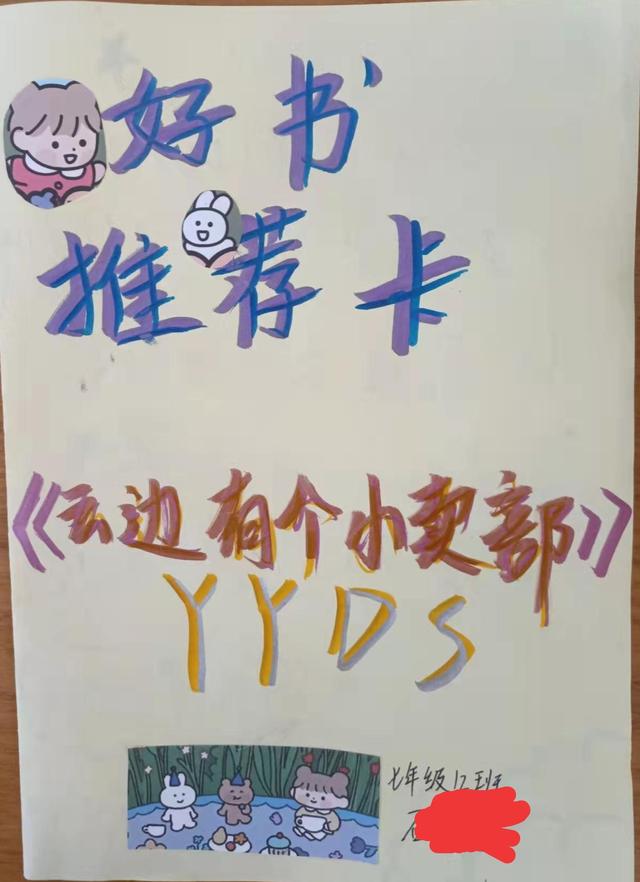 好书
推荐卡
《云边有个小卖部》
YYDS
七年级12班
石